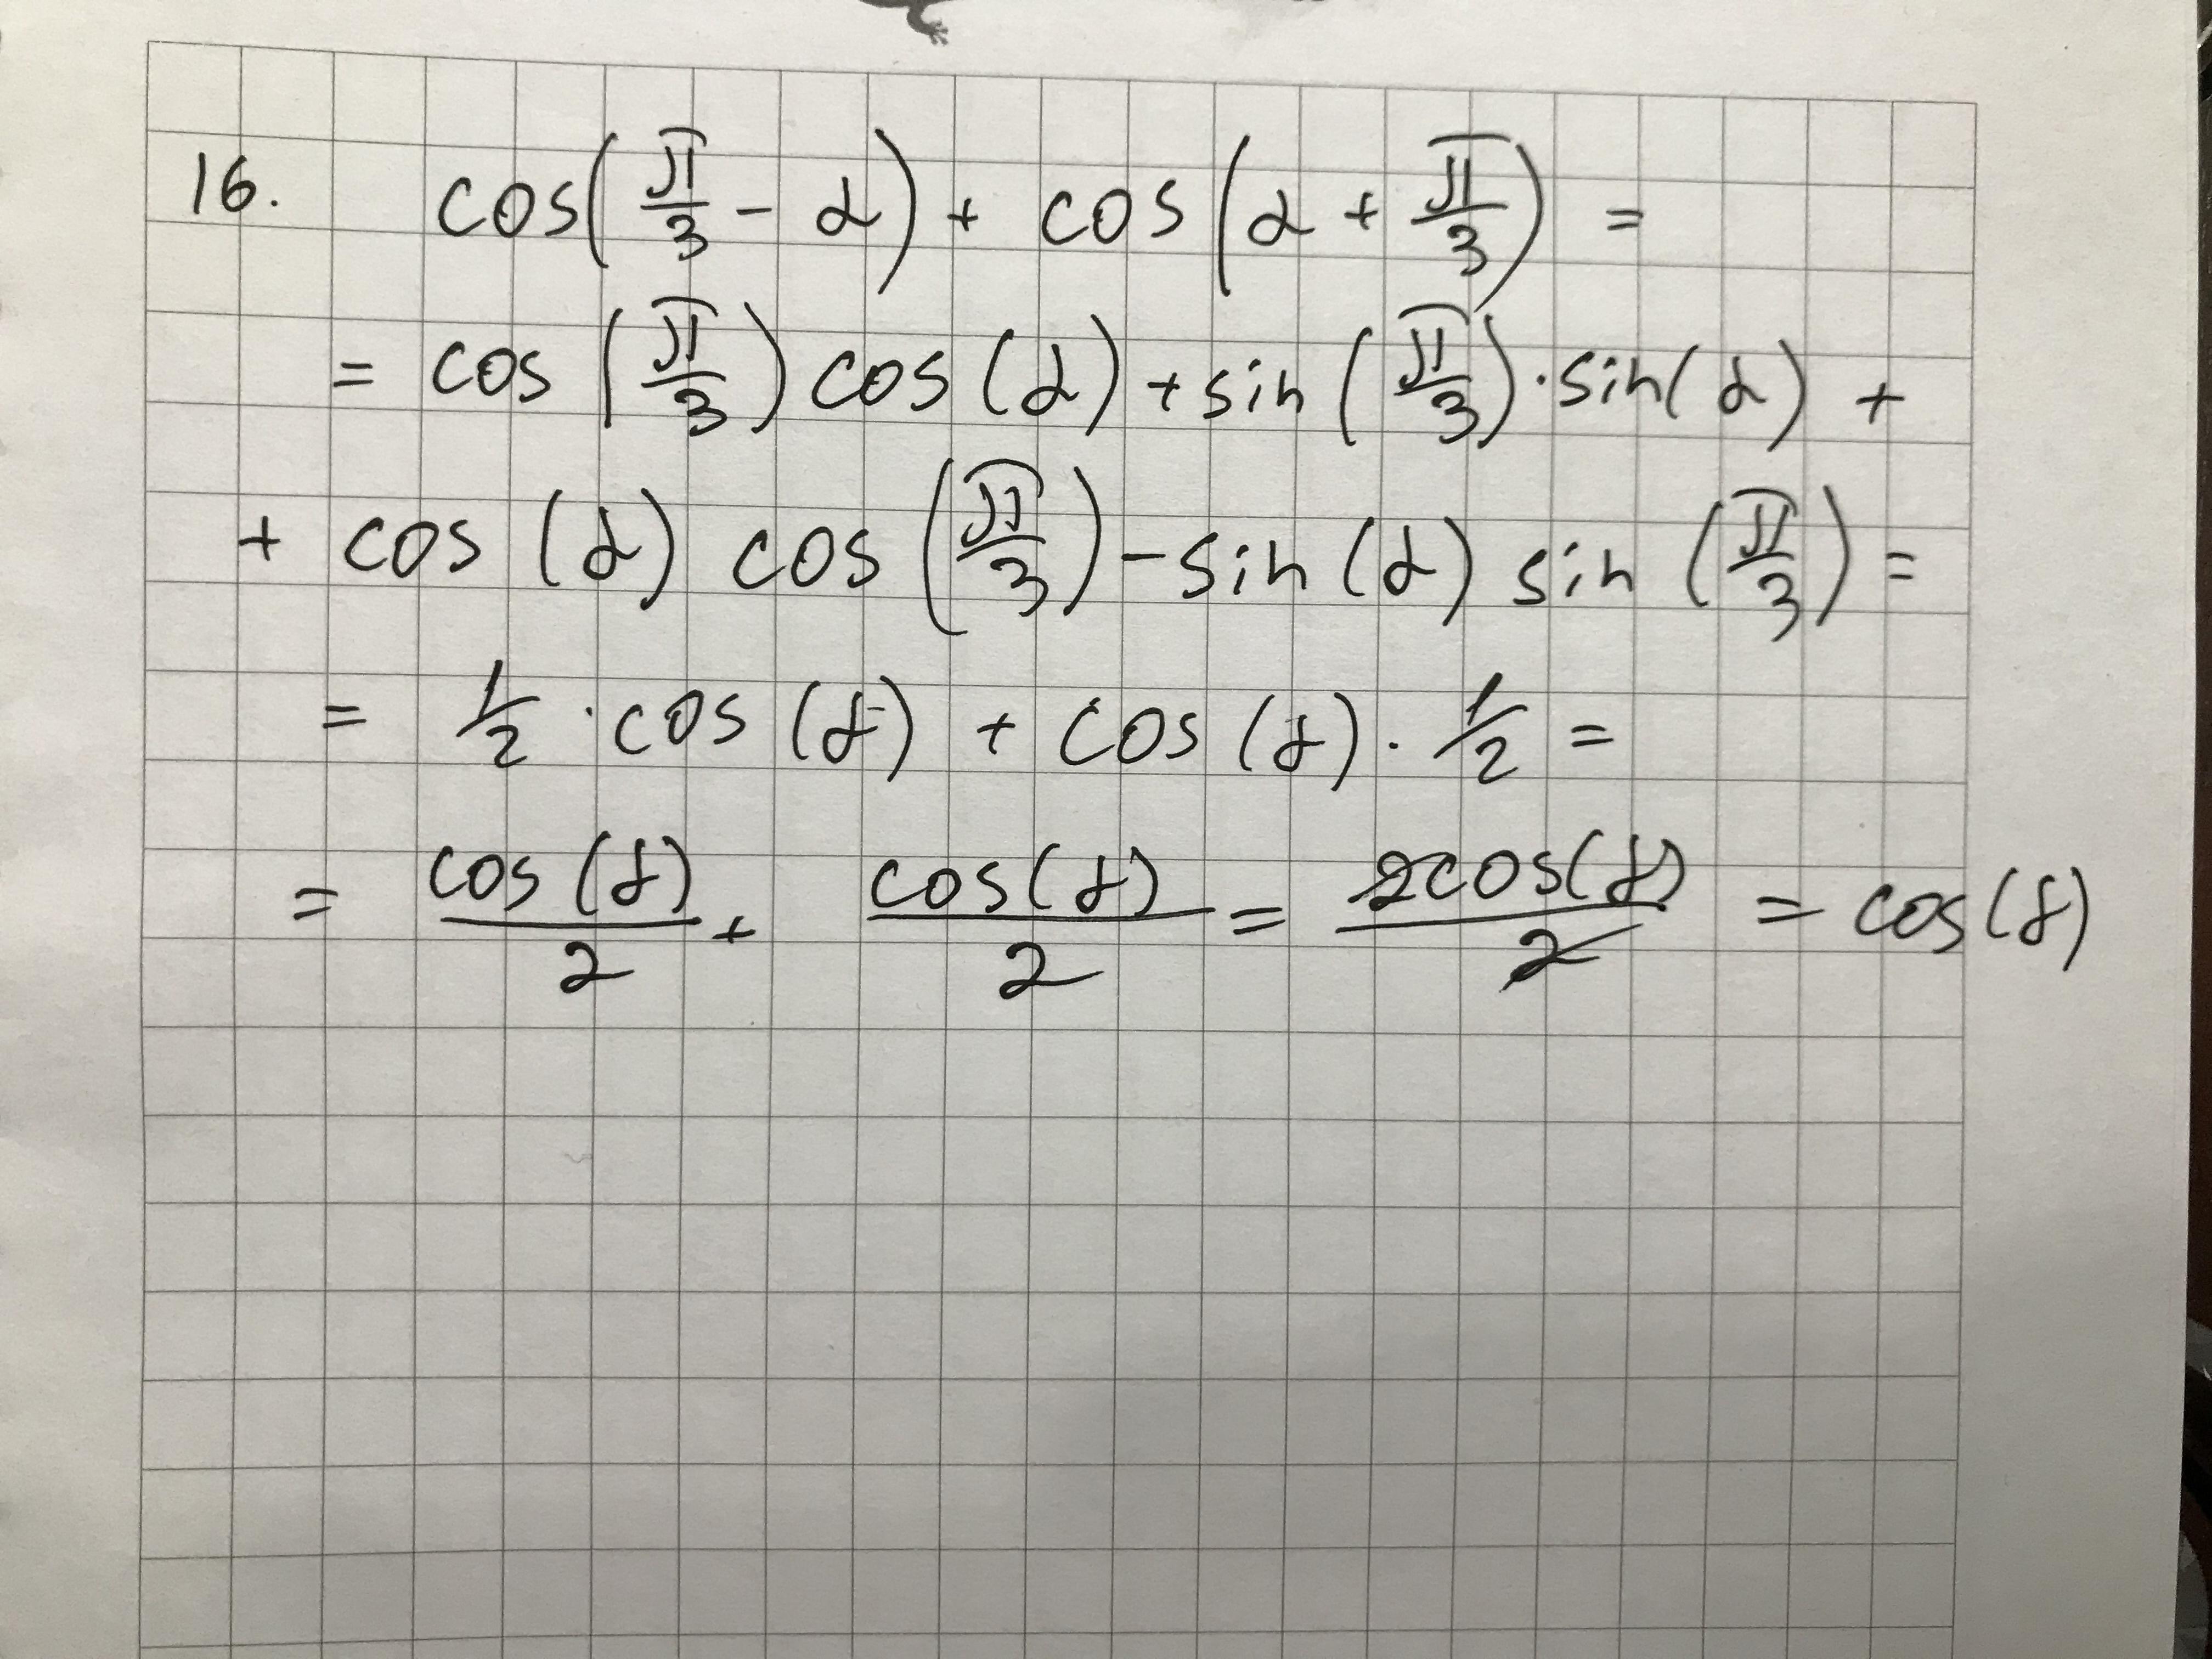 16. cos(π/3 - α) + cos(α + π/3) =
= cos(π/3) cos(α) + sin(π/3) · sin(α) +
+ cos(α) cos(π/3) - sin(α) sin(π/3) =
= 1/2 · cos(α) + cos(α) · 1/2 =
= cos(α)/2 + cos(α)/2 = 2cos(α)/2 = cos(α)